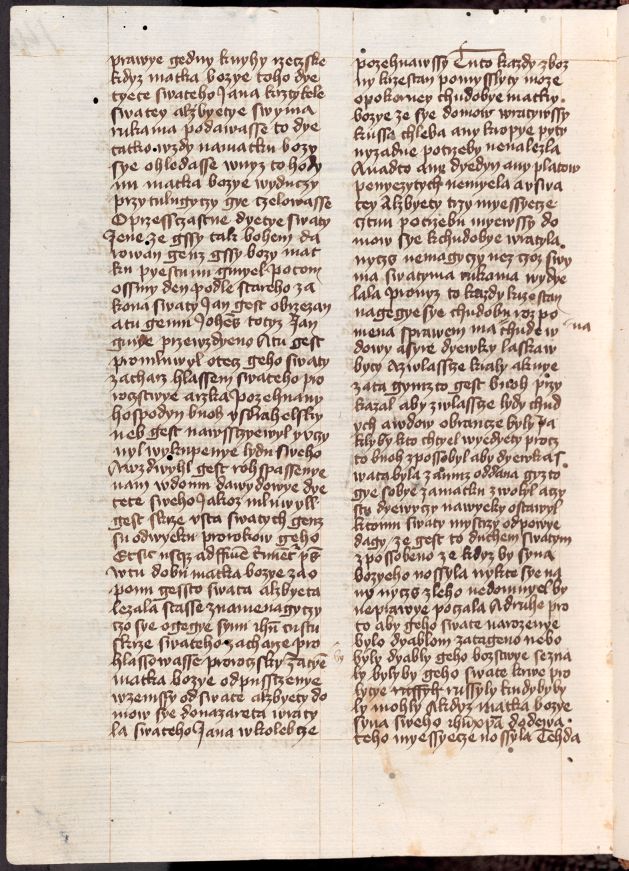 prawye gedny knyhy rzeczske
kdyz matka bozye toho dye
tyete swateho Jana krztytele
swatey alzbyetye swyma
rukama podawasse to dye
tatko wzdy namatku bozy
sye ohledasse wnyz to hody
nu matka bozye wyduczy
przytulugyczy gye czelowasse
O przessczastne dyetye swaty
Jene ze gssy tak bohem da
rowan genz gssy bozy mat
ku pyestunu gmyel potom
osmy den podle stareho za
kona swaty Jan gest obrzezan
a tu gemu Johes totyz Jan
gmye przewzdyeno A tu gest
promluwyl otecz geho swaty
zacharz hlassem swateho pro
roczstwye arzka pozehnany
hospodyn buoh ysrahelsky
neb gest nawsstyewyl y vczy
nyl wykupenye lydu sweho
A wzdwyhl gest roh spassenye
nam wdomu dawydowye dye
tete sweho Jakoz mluwyl
gest skrze vsta swatych genz
su od wyeku prorokow geho
Et sic usque ad finem
w tu dobu matka bozye za o
ponu gessto swata alzbyeta
lezala stasse znamenagyczy
czo sye o gegye synu ihu cristu
skrze swateho zacharze pro
hlassowasse proroczsky
matka bozye odpusstenye
wzemssy od swate alzbyety do
mow sye donazareta wraty
la swateho Jana w kolebcze
pozehnawssy Tuto kazdy zboz
ny krzestan pomyslyty moze
o pokorney chudobye matky
bozye ze sye domow wratywssy
kussa chleba any kropye pyty
nyzadne potrzeby nenalezla
A nadto any dyedyn any platow
penyezytych nemyela a v swa
tey Alzbyety trzy myessyecze
cztnu potrzebu myewssy do
mow sye kchudobye wratyla
nyczs nemagyczy nez czoz swy
ma swatyma rukama wydye
lala pronyz to kazdy krzestan
na gegye sye chudobu rozpo
mena sprawem ma chude w
dowy a syre dyewky laskaw
byty A zwlassze kraly a knye
zata gymzto gest buoh przy
kazal aby zwlassze lydy chud
ych a wdow obrancze byly
kly by kto chtyel wyedyety procz
to buoh zpossobyl aby dyewka s
wata byla zamuz oddana gyzto
gye sobye zamatku zwolyl a czy
stu dyewyczy nawyeky ostawyl
k tomu swaty mystrzy odpowye
dagy ze gest to duchem swatym
zpossobeno ze kdyz by syna
bozyeho nossyla nykte sye na
ny nyczs zleho nedomnyel by
neprzawye poczala A druhe pro
to aby geho swate narozenye
bylo dyablom zatageno nebo
byly dyably geho bozstwye sezna
ly byly by geho swate krwe pro
lytye russyly kudyby by
ly mohly A kdyz matka bozye
syna sweho ihu xpa dodewa
teho myessyecze nossyla Tehda